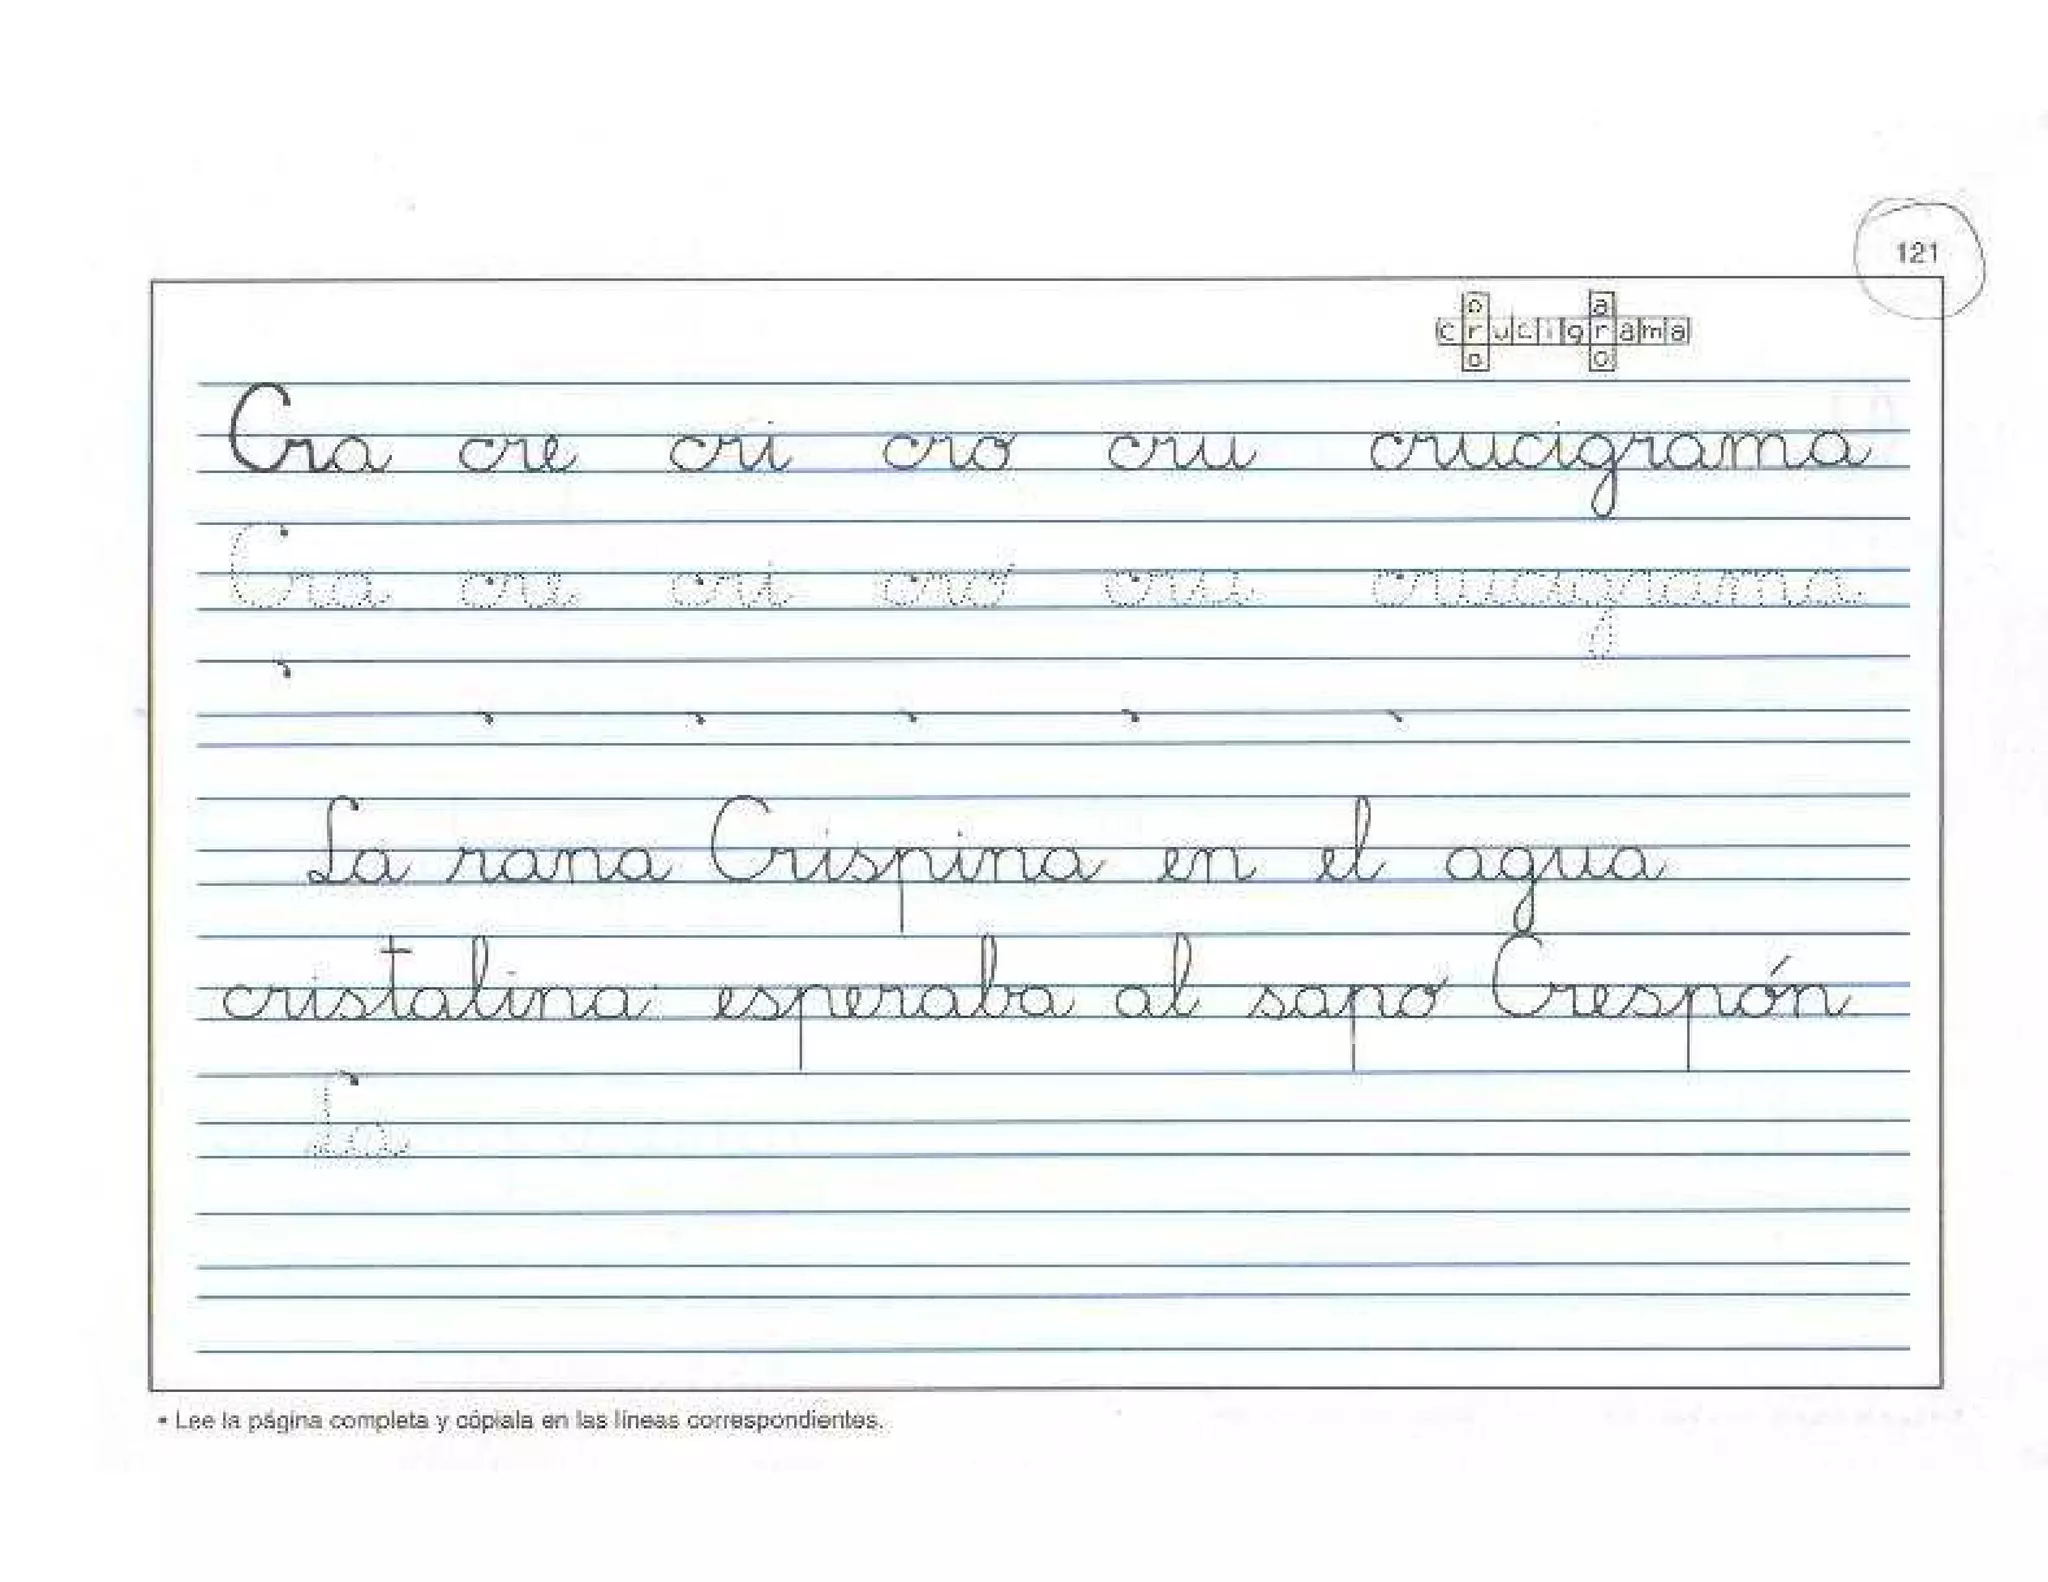 121
o a
crucigrama
o o
Cra cre cri cro cru crucigrama
Cra cre cri cro cru crucigrama
La rana Crispina en el agua
cristalina esperaba al sapo Crespón
La
• Lee la página completa y cópiala en las líneas correspondientes.